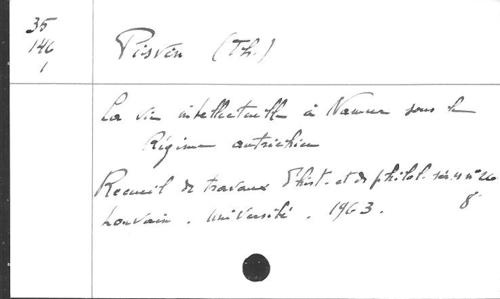 35
146
1
Pisvin (Th.)
La vie intellectuelle à Namur sous le
Régime autrichien
Recueil de travaux d'hist. et de philol. sér. 4 n° 26
Louvain. Université. 1963. 8°